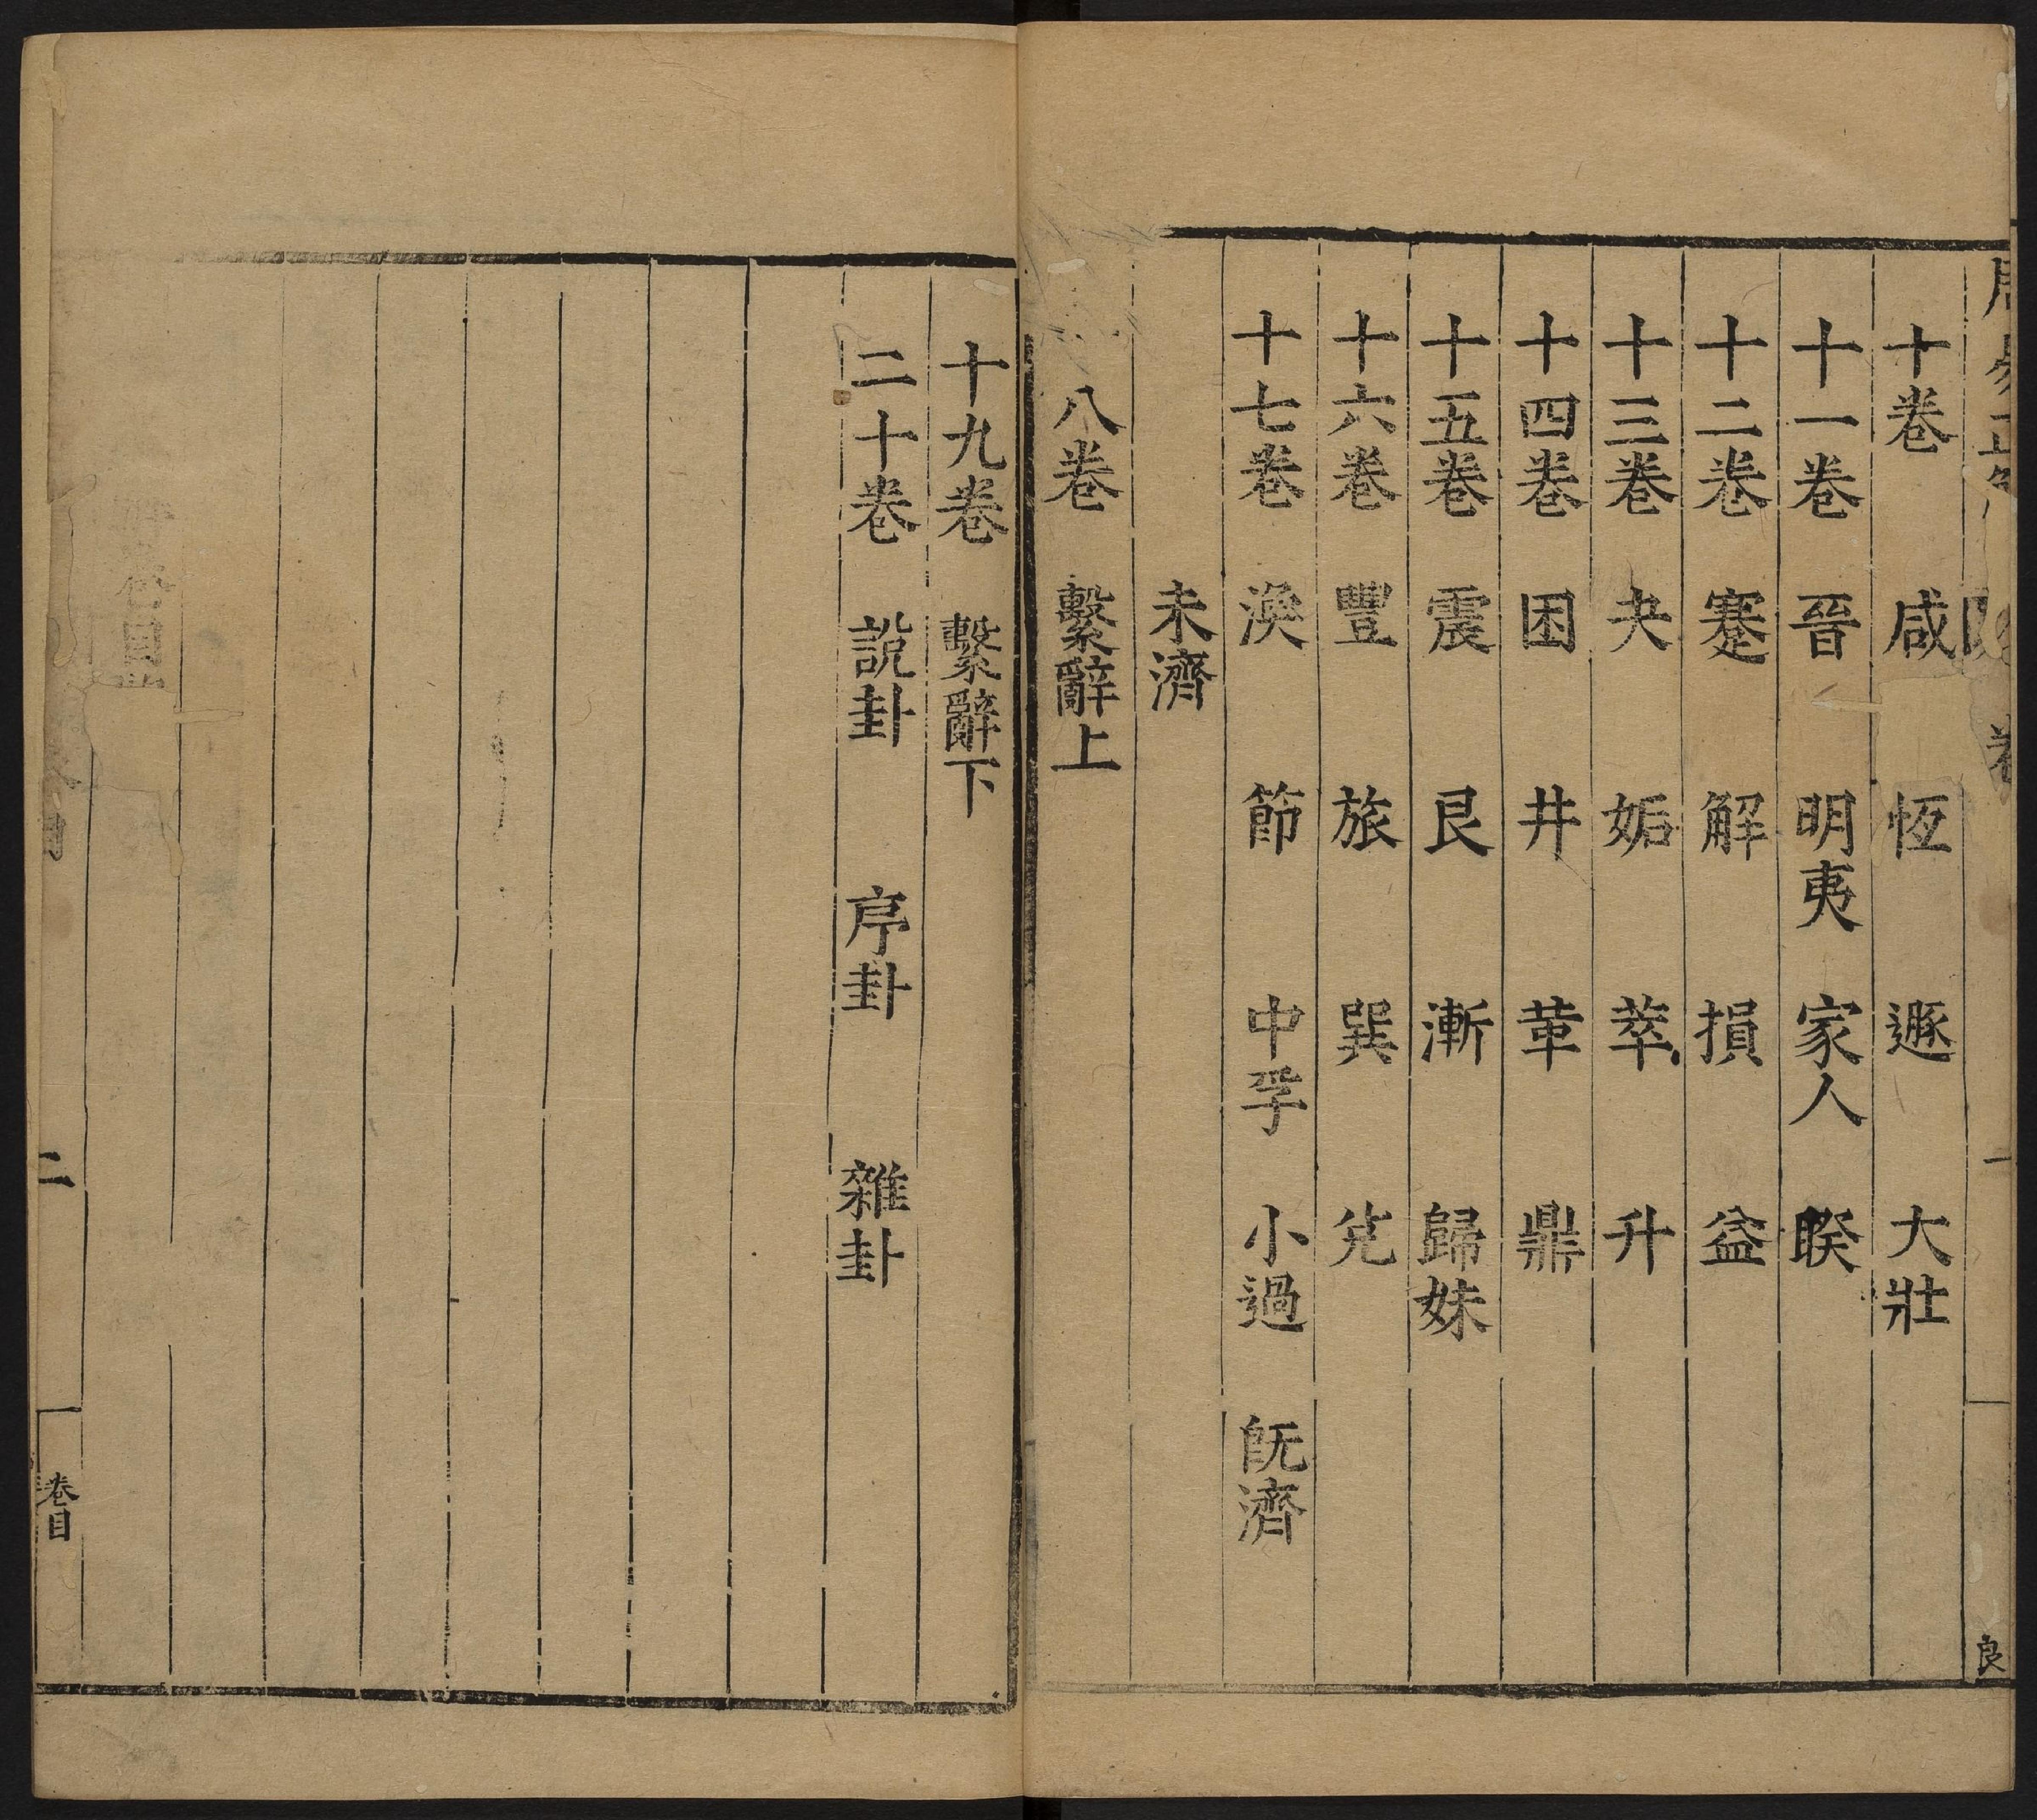 十卷 咸 恆 遯 大壯
十一卷 晉 明夷 家人 睽
十二卷 蹇 解 損 益
十三卷 夬 姤 萃 升
十四卷 困 井 革 鼎
十五卷 震 艮 漸 歸妹
十六卷 豐 旅 巽 兊
十七卷 渙 節 中孚 小過 旣濟
未濟
八卷 繫辭上
良
十九卷 繫辭下
二十卷 說卦 序卦 雜卦
二
卷目